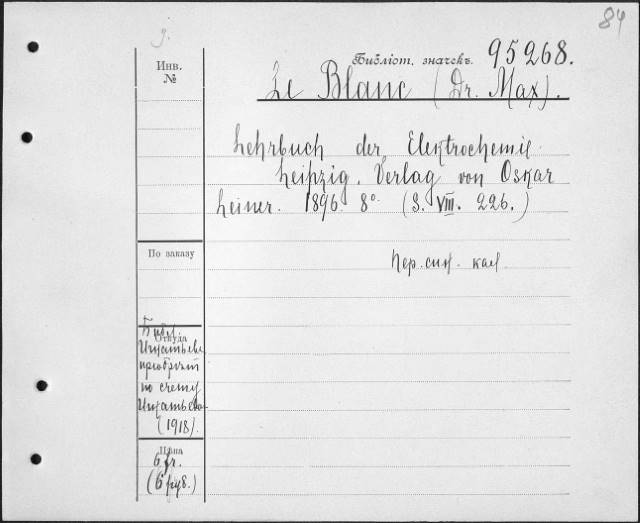 84
Э.
Библіот. значекъ. 95268.
Инв.
№
Le Blanc (Dr. Max).
Lehrbuch der Elektrochemie.
Leipzig. Verlag von Oskar
Leiner. 1896. 8°. (S. VIII. 226.)
По заказу
Пер. син. кал.
Откуда
Библ.
Игнатьева
приобрет
по счету
Игнатьева
(1918).
Цѣна
6 fr.
(6 руб.)